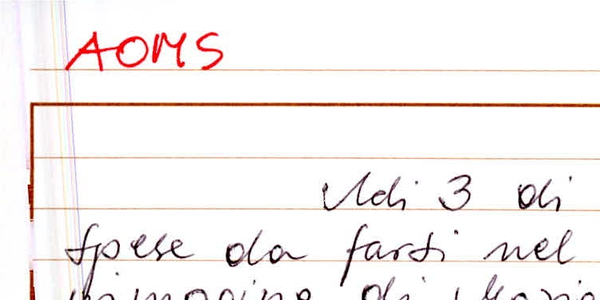 AOMS
Adi 3 di
Spese da farsi nel